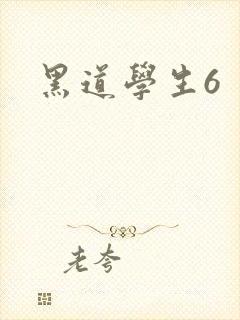 黑道學生6
老夸